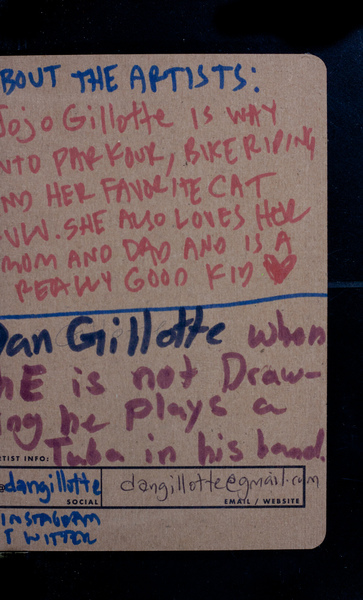 BOUT THE ARTISTS:
Jojo Gillotte IS WAY
NTO PARKOUR, BIKE RIDING
ND HER FAVORITE CAT
VW. SHE ALSO LOVES HER
MOM AND DAD AND IS A
REALLY GOOD KID
Dan Gillotte when
hE is not Draw-
ing he plays a
Tuba in his band.
RTIST INFO:
@dangillotte
dangillotte@gmail.com
SOCIAL
EMAIL / WEBSITE
INSTAGRAM
TWITTER